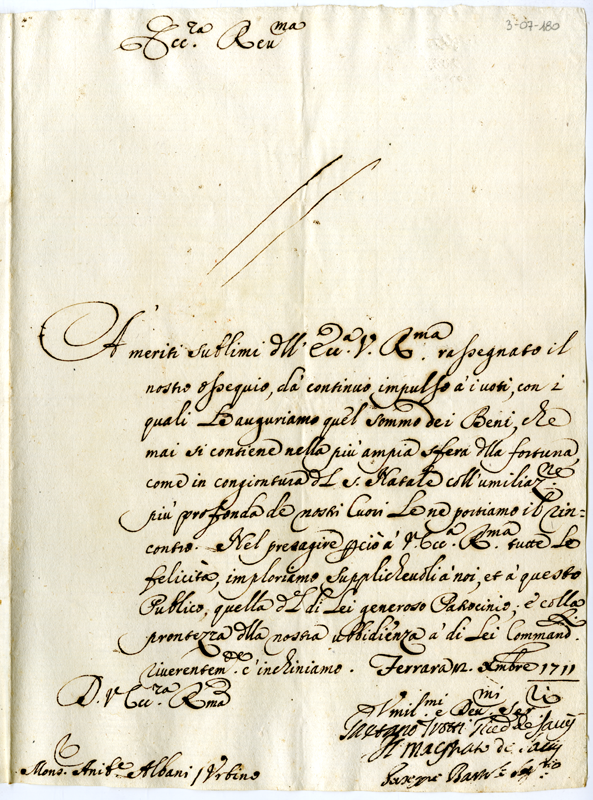 3-07-180
Ecc.ra Reu.ma
A' meriti sublimi dll' Ecc.a V. R.ma rassegnato il
nostro ossequio, dà continuo impulso à i voti, con i
quali Le auguriamo quel sommo dei Beni, che
mai si contiene nella più ampia sfera dlla fortuna,
come in congiontura dl S. Natale coll'umiliaz.ne
più profonda de nostri Cuori Le ne portiamo il rin=
contro. Nel presagire à V. Ecc.a R.ma tutte Le
felicità, imploriamo, supplicheuoli à noi, et à questo
Publico, quella dl di Lei generoso Patrocinio; e colla
prontezza dlla nostra ubbidienza à di Lei Command.
riverentem.te c'inchiniamo. Ferrara 12. Xmbre 1711
D. V. Ecc.ra R.ma
Vmil.mi e Deu.mi Ser.ri
Gaetano Trotti de Sauij
Il Magistrato de Sauij
Mons. Anib.e Albani / Vrbino